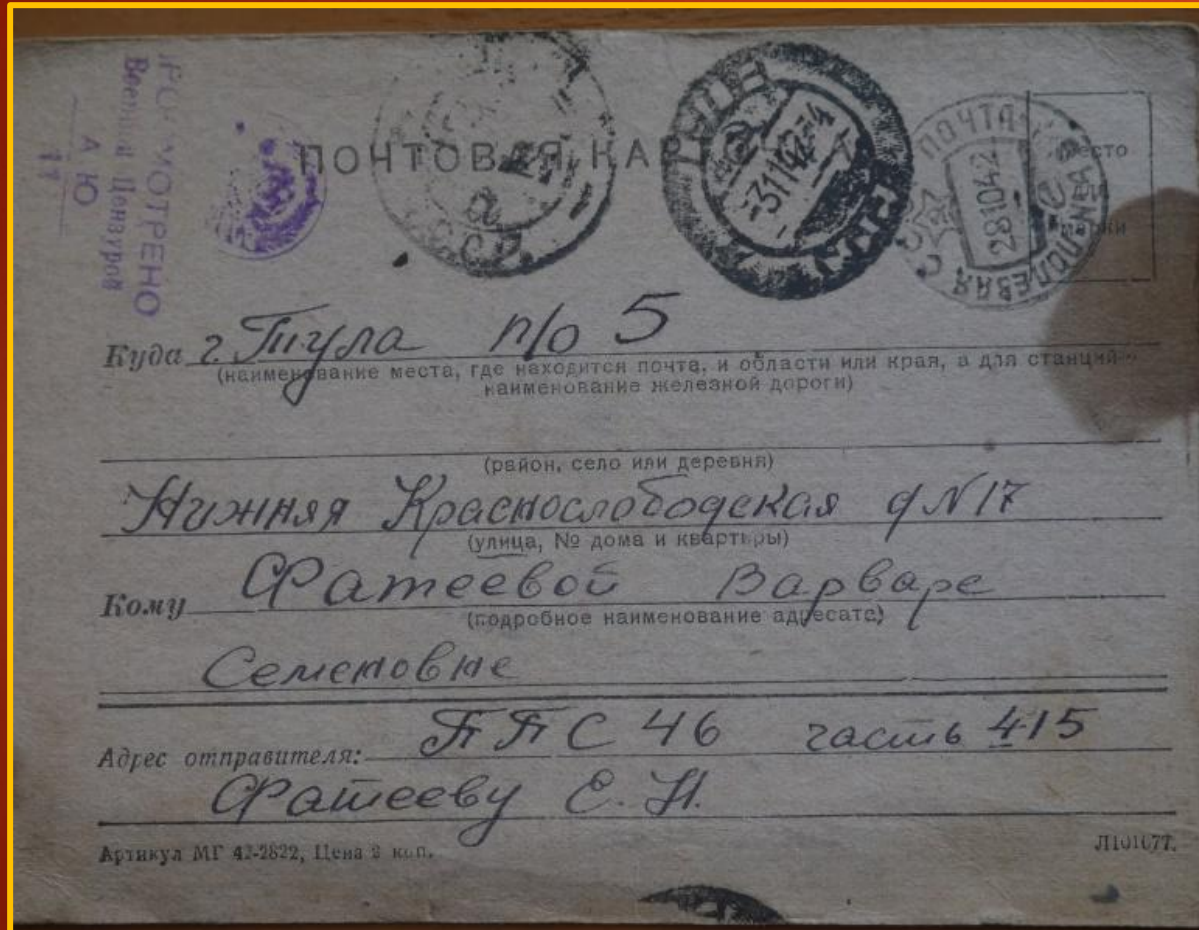 ПРОСМОТРЕНО
Военной Цензурой
А Ю
11
ПОЧТОВАЯ КАР
а
ССР
ТУЛА
-31142-4
ПОЧТА
28 10 42
ПОЛЕВАЯ
Место
марки
Куда г. Тула п/о 5
(наименование места, где находится почта, и области или края, а для станций—
наименование железной дороги)
(район, село или деревня)
Нижняя Краснослободская д N 17
(улица, № дома и квартиры)
Кому Фатеевой Варваре
(подробное наименование адресата)
Семеновне
Адрес отправителя: ППС 46 часть 415
Фатееву Е. Н.
Артикул МГ 42-2822, Цена 2 коп.
Л101677.